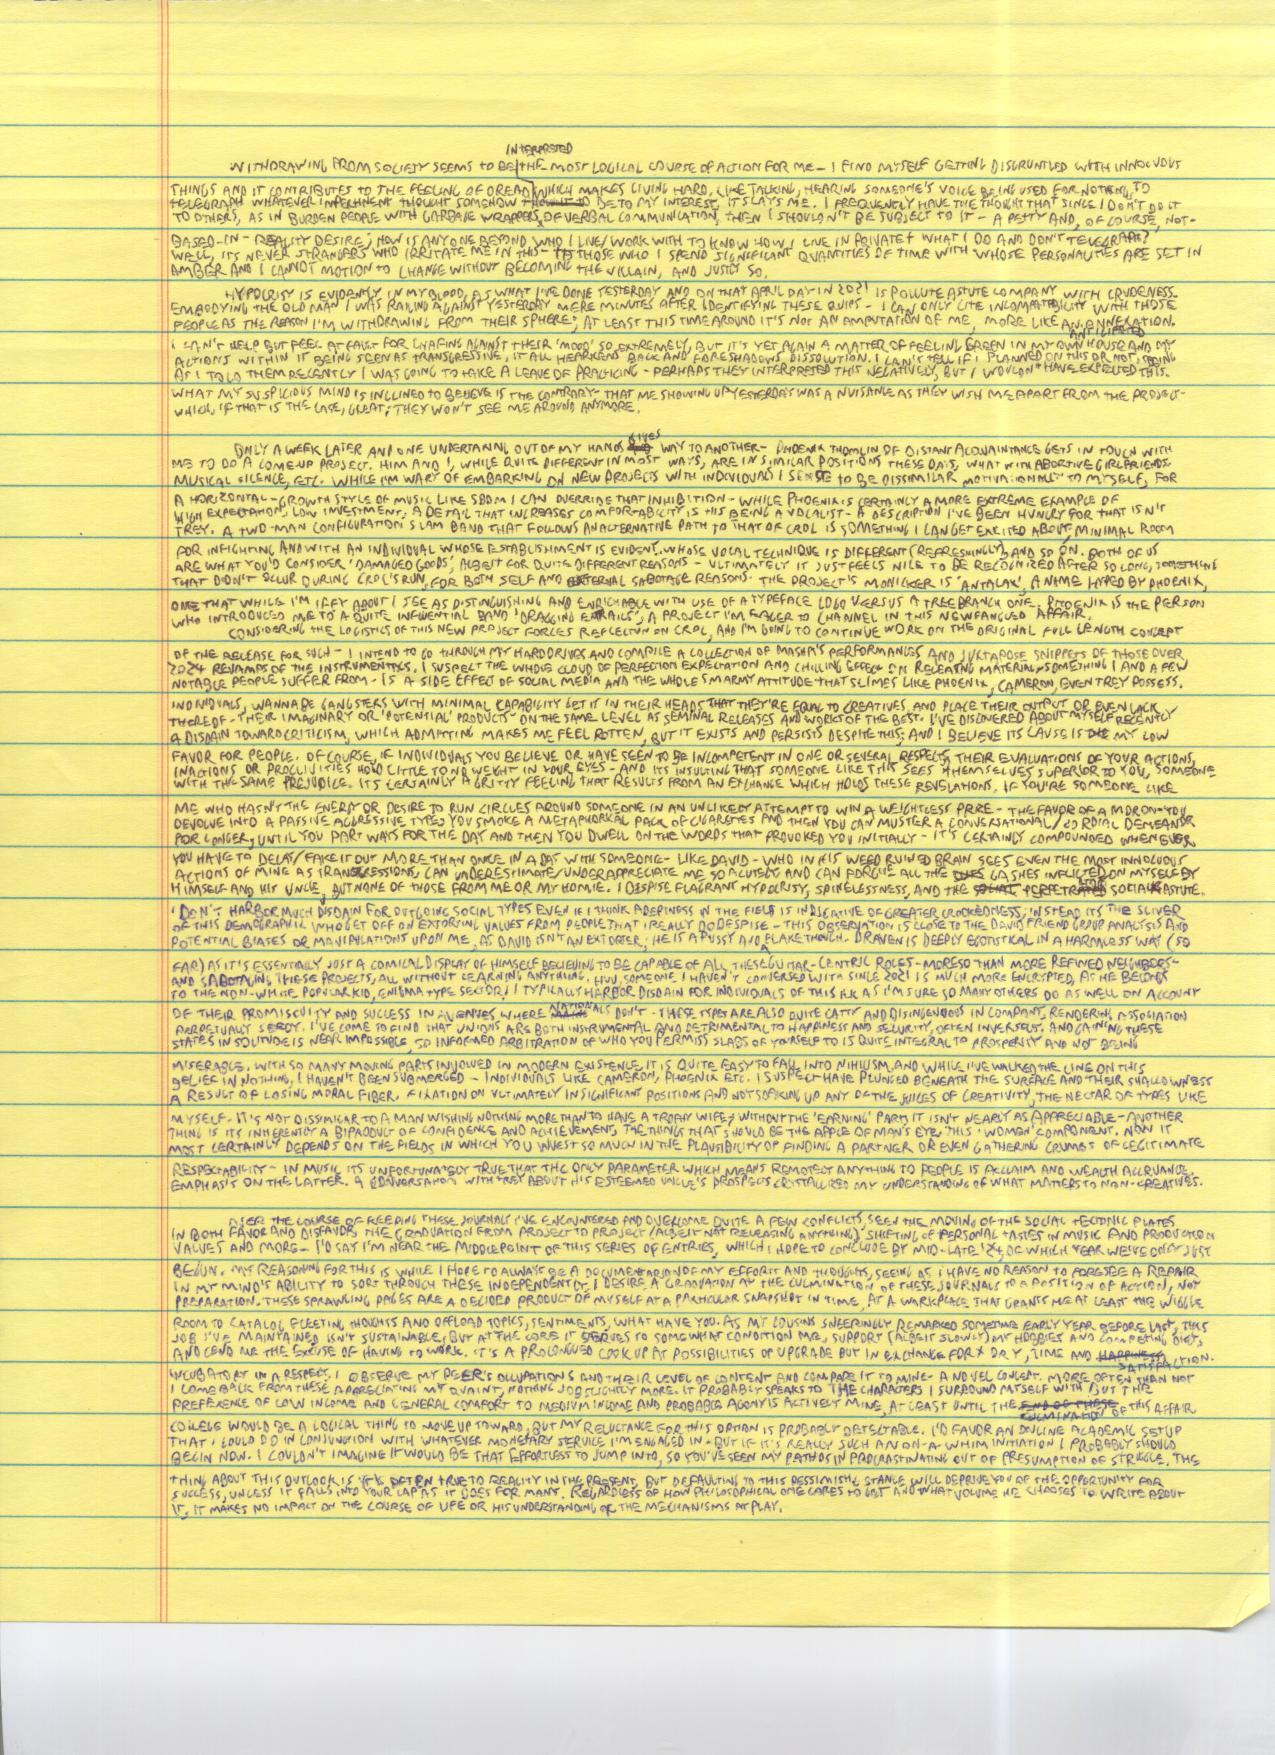 INTERPRETED
WITHDRAWING FROM SOCIETY SEEMS TO BE THE MOST LOGICAL COURSE OF ACTION FOR ME - I FIND MYSELF GETTING DISGRUNTLED WITH INNOCUOUS
THINGS AND IT CONTRIBUTES TO THE FEELING OF DREAD WHICH MAKES LIVING HARD, LIKE TALKING, HEARING SOMEONE'S VOICE BEING USED FOR NOTHING, TO
TELEGRAPH WHATEVER IMPERTINENT THOUGHT SOMEHOW TO BE TO MY INTEREST, IT SLAYS ME. I FREQUENTLY HAVE THE THOUGHT THAT SINCE I DON'T DO IT
TO OTHERS, AS IN BURDEN PEOPLE WITH GARBAGE WRAPPERS OF VERBAL COMMUNICATION, THEN I SHOULDN'T BE SUBJECT TO IT - A PETTY AND, OF COURSE, NOT-
BASED-IN-REALITY DESIRE; HOW IS ANYONE BEYOND WHO I LIVE/WORK WITH TO KNOW HOW I LIVE IN PRIVATE + WHAT I DO AND DON'T TELEGRAPH?
WELL, IT'S NEVER STRANGERS WHO IRRITATE ME IN THIS - THOSE WHO I SPEND SIGNIFICANT QUANTITIES OF TIME WITH WHOSE PERSONALITIES ARE SET IN
AMBER AND I CANNOT MOTION TO CHANGE WITHOUT BECOMING THE VILLAIN, AND JUSTLY SO.
HYPOCRISY IS EVIDENTLY IN MY BLOOD, AS WHAT I'VE DONE YESTERDAY AND ON THAT APRIL DAY IN 2021 IS POLLUTE ASTUTE COMPANY WITH CRUDENESS.
EMBODYING THE OLD MAN I WAS RAILING AGAINST YESTERDAY MERE MINUTES AFTER IDENTIFYING THESE QUIPS - I CAN ONLY CITE INCOMPATIBILITY WITH THOSE
PEOPLE AS THE REASON I'M WITHDRAWING FROM THEIR SPHERE; AT LEAST THIS TIME AROUND IT'S NOT AN AMPUTATION OF ME, MORE LIKE AN ANNEXATION.
ANTICIPATED
I CAN'T HELP BUT FEEL AT FAULT FOR CHAFING AGAINST THEIR 'MOOD' SO EXTREMELY, BUT IT'S YET AGAIN A MATTER OF FEELING GREEN IN MY OWN HOUSE AND MY
ACTIONS WITHIN IT BEING SEEN AS TRANSGRESSIVE, IT ALL HEARKENS BACK AND FORESHADOWS DISSOLUTION. I CAN'T TELL IF I PLANNED ON THIS OR NOT, SEEING
AS I TOLD THEM RECENTLY I WAS GOING TO TAKE A LEAVE OF PRACTICING - PERHAPS THEY INTERPRETED THIS NEGATIVELY, BUT I WOULDN'T HAVE EXPECTED THIS.
WHAT MY SUSPICIOUS MIND IS INCLINED TO BELIEVE IS THE CONTRARY - THAT ME SHOWING UP YESTERDAY WAS A NUISANCE AS THEY WISH ME APART FROM THE PROJECT -
WHICH, IF THAT IS THE CASE, GREAT; THEY WON'T SEE ME AROUND ANYMORE.
GIVES
ONLY A WEEK LATER AND ONE UNDERTAKING OUT OF MY HANDS WAY TO ANOTHER - PHOENIX THOMLIN OF DISTANT ACQUAINTANCE GETS IN TOUCH WITH
ME TO DO A COME-UP PROJECT. HIM AND I, WHILE QUITE DIFFERENT IN MOST WAYS, ARE IN SIMILAR POSITIONS THESE DAYS, WHAT WITH ABORTIVE GIRLFRIENDS,
MUSICAL SILENCE, ETC. WHILE I'M WARY OF EMBARKING ON NEW PROJECTS WITH INDIVIDUALS I SENSE TO BE DISSIMILAR MOTIVATIONALLY TO MYSELF, FOR
A HORIZONTAL-GROWTH STYLE OF MUSIC LIKE SBDM I CAN OVERRIDE THAT INHIBITION - WHILE PHOENIX IS CERTAINLY A MORE EXTREME EXAMPLE OF
HIGH EXPECTATION, LOW INVESTMENT, A DETAIL THAT INCREASES COMFORTABILITY IS HIS BEING A VOCALIST - A DESCRIPTION I'VE BEEN HUNGRY FOR THAT ISN'T
TREY. A TWO-MAN CONFIGURATION SLAM BAND THAT FOLLOWS AN ALTERNATIVE PATH TO THAT OF CRDL IS SOMETHING I CAN GET EXCITED ABOUT, MINIMAL ROOM
FOR INFIGHTING AND WITH AN INDIVIDUAL WHOSE ESTABLISHMENT IS EVIDENT, WHOSE VOCAL TECHNIQUE IS DIFFERENT (REFRESHINGLY) AND SO ON. BOTH OF US
ARE WHAT YOU'D CONSIDER 'DAMAGED GOODS', ALBEIT FOR QUITE DIFFERENT REASONS - ULTIMATELY IT JUST FEELS NICE TO BE RECOGNIZED AFTER SO LONG, SOMETHING
THAT DIDN'T OCCUR DURING CRDL'S RUN, FOR BOTH SELF AND EXTERNAL SABOTAGE REASONS. THE PROJECT'S MONICKER IS 'ANTALAX', A NAME HYPED BY PHOENIX,
ONE THAT WHILE I'M IFFY ABOUT I SEE AS DISTINGUISHING AND ENRICHABLE WITH USE OF A TYPEFACE LOGO VERSUS A TREE BRANCH ONE. PHOENIX IS THE PERSON
WHO INTRODUCED ME TO A QUITE INFLUENTIAL BAND 'DRAGGING ENTRAILS', A PROJECT I'M EAGER TO CHANNEL IN THIS NEWFANGLED AFFAIR.
CONSIDERING THE LOGISTICS OF THIS NEW PROJECT FORCES REFLECTION ON CRDL, AND I'M GOING TO CONTINUE WORK ON THE ORIGINAL FULL LENGTH CONCEPT
OF THE RELEASE FOR SUCH - I INTEND TO GO THROUGH MY HARD DRIVES AND COMPILE A COLLECTION OF MASHA'S PERFORMANCES AND JUXTAPOSE SNIPPETS OF THOSE OVER
2024 REVAMPS OF THE INSTRUMENTALS. I SUSPECT THE WHOLE CLOUD OF PERFECTION EXPECTATION AND CHILLING EFFECT ON RELEASING MATERIAL - SOMETHING I AND A FEW
NOTABLE PEOPLE SUFFER FROM - IS A SIDE EFFECT OF SOCIAL MEDIA AND THE WHOLE SMARMY ATTITUDE THAT SLIMES LIKE PHOENIX, CAMERON, EVEN TREY POSSESS.
INDIVIDUALS, WANNABE GANGSTERS WITH MINIMAL CAPABILITY GET IT IN THEIR HEADS THAT THEY'RE EQUAL TO CREATIVES, AND PLACE THEIR OUTPUT OR EVEN LACK
THEREOF - THEIR IMAGINARY OR 'POTENTIAL' PRODUCTS - ON THE SAME LEVEL AS SEMINAL RELEASES AND WORKS OF THE BEST. I'VE DISCOVERED ABOUT MYSELF RECENTLY
A DISDAIN TOWARD CRITICISM, WHICH ADMITTING MAKES ME FEEL ROTTEN, BUT IT EXISTS AND PERSISTS DESPITE THIS; AND I BELIEVE ITS CAUSE IS MY LOW
FAVOR FOR PEOPLE. OF COURSE, IF INDIVIDUALS YOU BELIEVE OR HAVE SEEN TO BE INCOMPETENT IN ONE OR SEVERAL RESPECTS, THEIR EVALUATIONS OF YOUR ACTIONS,
INACTIONS OR PROCLIVITIES HOLD LITTLE TO NO WEIGHT IN YOUR EYES - AND IT'S INSULTING THAT SOMEONE LIKE THIS SEES THEMSELVES SUPERIOR TO YOU, SOMEONE
WITH THE SAME PREJUDICE. IT'S CERTAINLY A GRITTY FEELING THAT RESULTS FROM AN EXCHANGE WHICH HOLDS THESE REVELATIONS. IF YOU'RE SOMEONE LIKE
ME WHO HASN'T THE ENERGY OR DESIRE TO RUN CIRCLES AROUND SOMEONE IN AN UNLIKELY ATTEMPT TO WIN A WEIGHTLESS PRIZE - THE FAVOR OF A MORON - YOU
DEVOLVE INTO A PASSIVE AGGRESSIVE TYPE; YOU SMOKE A METAPHORICAL PACK OF CIGARETTES AND THEN YOU CAN MUSTER A CONVERSATIONAL/CORDIAL DEMEANOR
FOR LONGER, UNTIL YOU PART WAYS FOR THE DAY AND THEN YOU DWELL ON THE WORDS THAT PROVOKED YOU INITIALLY - IT'S CERTAINLY COMPOUNDED WHENEVER
YOU HAVE TO DELAY/FAKE IT OUT MORE THAN ONCE IN A DAY WITH SOMEONE - LIKE DAVID - WHO IN HIS WEED RUINED BRAIN SEES EVEN THE MOST INNOCUOUS
ACTIONS OF MINE AS TRANSGRESSIONS, CAN UNDERESTIMATE/UNDERAPPRECIATE ME SO ACUTELY AND CAN FORGIVE ALL THE GASHES INFLICTED ON MYSELF BY
HIMSELF AND HIS UNCLE, BUT NONE OF THOSE FROM ME OR MY HOMIE. I DISPISE FLAGRANT HYPOCRISY, SPINELESSNESS, AND THE PERPETRATOR SOCIAL ASTUTE.
I DON'T HARBOR MUCH DISDAIN FOR OUTGOING SOCIAL TYPES EVEN IF I THINK ADEPTNESS IN THE FIELD IS INDICATIVE OF GREATER CROOKEDNESS; INSTEAD IT'S THE SLIVER
OF THIS DEMOGRAPHIC WHO GET OFF ON EXTORTING VALUES FROM PEOPLE THAT I REALLY DO DESPISE - THIS OBSERVATION IS CLOSE TO THE DAVID FRIEND GROUP ANALYSIS AND
POTENTIAL BIASES OR MANIPULATIONS UPON ME, AS DAVID ISN'T AN EXTORTER; HE IS A PUSSY AND FLAKE THOUGH. DRAVEN IS DEEPLY EGOTISTICAL IN A HARMLESS WAY (SO
FAR) AS IT'S ESSENTIALLY JUST A COMICAL DISPLAY OF HIMSELF BELIEVING TO BE CAPABLE OF ALL THESE GUITAR-CENTRIC ROLES - MORESO THAN MORE REFINED NEIGHBORS -
AND SABOTAGING THESE PROJECTS, ALL WITHOUT LEARNING ANYTHING. HUU, SOMEONE I HAVEN'T CONVERSED WITH SINCE 2021 IS MUCH MORE ENCRYPTED, AS HE BELONGS
TO THE NON-WHITE, POPULAR KID, ENIGMA-TYPE SECTOR! I TYPICALLY HARBOR DISDAIN FOR INDIVIDUALS OF THIS ILK AS I'M SURE SO MANY OTHERS DO AS WELL ON ACCOUNT
OF THEIR PROMISCUITY AND SUCCESS IN AVENUES WHERE NATIONALS DON'T - THESE TYPES ARE ALSO QUITE CATTY AND DISINGENUOUS IN COMPANY, RENDERING ASSOCIATION
PERPETUALLY SEEDY. I'VE COME TO FIND THAT UNIONS ARE BOTH INSTRUMENTAL AND DETRIMENTAL TO HAPPINESS AND SECURITY, OFTEN INVERSELY, AND GAINING THESE
STATES IN SOLITUDE IS NEAR IMPOSSIBLE, SO INFORMED ARBITRATION OF WHO YOU PERMISS SLABS OF YOURSELF TO IS QUITE INTEGRAL TO PROSPERITY AND NOT BEING
MISERABLE. WITH SO MANY MOVING PARTS INVOLVED IN MODERN EXISTENCE, IT IS QUITE EASY TO FALL INTO NIHILISM, AND WHILE I'VE WALKED THE LINE ON THIS
BELIEF IN NOTHING, I HAVEN'T BEEN SUBMERGED - INDIVIDUALS LIKE CAMERON, PHOENIX ETC. I SUSPECT HAVE PLUNGED BENEATH THE SURFACE AND THEIR SHALLOWNESS
A RESULT OF LOSING MORAL FIBER. FIXATION ON ULTIMATELY INSIGNIFICANT POSITIONS AND NOT SOAKING UP ANY OF THE JUICES OF CREATIVITY, THE NECTAR OF TYPES LIKE
MYSELF. IT'S NOT DISSIMILAR TO A MAN WISHING NOTHING MORE THAN TO HAVE A TROPHY WIFE; WITHOUT THE 'EARNING' PART IT ISN'T NEARLY AS APPRECIABLE - ANOTHER
THING IS IT'S INHERENTLY A BIPRODUCT OF CONFIDENCE AND ACHIEVEMENT, THE THINGS THAT SHOULD BE THE APPLE OF MAN'S EYE, THIS 'WOMEN' COMPONENT. NOW IT
MOST CERTAINLY DEPENDS ON THE FIELDS IN WHICH YOU INVEST SO MUCH IN THE PLAUSIBILITY OF FINDING A PARTNER OR EVEN GATHERING CRUMBS OF LEGITIMATE
RESPECTABILITY - IN MUSIC ITS UNFORTUNATELY TRUE THAT THE ONLY PARAMETER WHICH MEANS REMOTELY ANYTHING TO PEOPLE IS ACCLAIM AND WEALTH ACCRUANCE,
EMPHASIS ON THE LATTER. A CONVERSATION WITH TREY ABOUT HIS ESTEEMED UNCLE'S PROSPECTS CRYSTALLIZED MY UNDERSTANDING OF WHAT MATTERS TO NON-CREATIVES.
OVER THE COURSE OF KEEPING THESE JOURNALS I'VE ENCOUNTERED AND OVERCOME QUITE A FEW CONFLICTS, SEEN THE MOVING OF THE SOCIAL TECTONIC PLATES
IN BOTH FAVOR AND DISFAVOR, THE GRADUATION FROM PROJECT TO PROJECT (ALBEIT NOT RELEASING ANYTHING), SHIFTING OF PERSONAL TASTES IN MUSIC AND PRODUCTION
VALUES AND MORE - I'D SAY I'M NEAR THE MIDDLEPOINT OF THIS SERIES OF ENTRIES, WHICH I HOPE TO CONCLUDE BY MID-LATE '24, OF WHICH YEAR WE'VE ONLY JUST
BEGUN. MY REASONING FOR THIS IS WHILE I HOPE TO ALWAYS BE A DOCUMENTARIAN OF MY EFFORTS AND THOUGHTS, SEEING AS I HAVE NO REASON TO FORESEE A REPAIR
IN MY MIND'S ABILITY TO SORT THROUGH THESE INDEPENDENTLY, I DESIRE A GRADUATION AT THE CULMINATION OF THESE JOURNALS TO A POSITION OF ACTION, NOT
PREPARATION. THESE SPRAWLING PAGES ARE A DECIDED PRODUCT OF MYSELF AT A PARTICULAR SNAPSHOT IN TIME, AT A WORKPLACE THAT GRANTS ME AT LEAST THE WIGGLE
ROOM TO CATALOG FLEETING THOUGHTS AND OFFLOAD TOPICS, SENTIMENTS, WHAT HAVE YOU. AS MY COUSINS SNEERINGLY REMARKED SOMETIME EARLY YEAR BEFORE LAST, THIS
JOB I'VE MAINTAINED ISN'T SUSTAINABLE, BUT AT THE CORE IT SERVES TO SOMEWHAT CONDITION ME, SUPPORT (ALBEIT SLOWLY) MY HOBBIES AND COMPETING DIET,
AND LEND ME THE EXCUSE OF HAVING TO WORK. IT'S A PROLONGED COOK UP AT POSSIBILITIES OF UPGRADE BUT IN EXCHANGE FOR X DRY, TIME AND HAPPINESS
SATISFACTION.
INCUBATORY IN A RESPECT. I OBSERVE MY PEER'S OCCUPATIONS AND THEIR LEVEL OF CONTENT AND COMPARE IT TO MINE - A NOVEL CONCEPT. MORE OFTEN THAN NOT
I COME BACK FROM THESE APPRECIATING MY QUAINT, NOTHING JOB SLIGHTLY MORE. IT PROBABLY SPEAKS TO THE CHARACTERS I SURROUND MYSELF WITH BUT THE
PREFERENCE OF LOW INCOME AND GENERAL COMFORT TO MEDIUM INCOME AND PROBABLE AGONY IS ACTIVELY MINE, AT LEAST UNTIL THE END OF THESE
CULMINATION OF THIS AFFAIR
COLLEGE WOULD BE A LOGICAL THING TO MOVE UP TOWARD, BUT MY RELUCTANCE FOR THIS OPTION IS PROBABLY DETECTABLE. I'D FAVOR AN ONLINE ACADEMIC SETUP
THAT I COULD DO IN CONJUNCTION WITH WHATEVER MONETARY SERVICE I'M ENGAGED IN - BUT IF IT'S REALLY SUCH AN ON-A-WHIM INITIATION I PROBABLY SHOULD
BEGIN NOW. I COULDN'T IMAGINE IT WOULD BE THAT EFFORTLESS TO JUMP INTO, SO YOU'VE SEEN MY PATHOS IN PROCRASTINATING OUT OF PRESUMPTION OF STRUGGLE. THE
THING ABOUT THIS OUTLOOK IS IT'S OFTEN TRUE TO REALITY IN THE PRESENT, BUT DEFAULTING TO THIS PESSIMISTIC STANCE WILL DEPRIVE YOU OF THE OPPORTUNITY FOR
SUCCESS, UNLESS IT FALLS INTO YOUR LAP AS IT DOES FOR MANY. REGARDLESS OF HOW PHILOSOPHICAL ONE CARES TO GET AND WHAT VOLUME HE CHOOSES TO WRITE ABOUT
IT, IT MAKES NO IMPACT ON THE COURSE OF LIFE OR HIS UNDERSTANDING OF THE MECHANISMS AT PLAY.